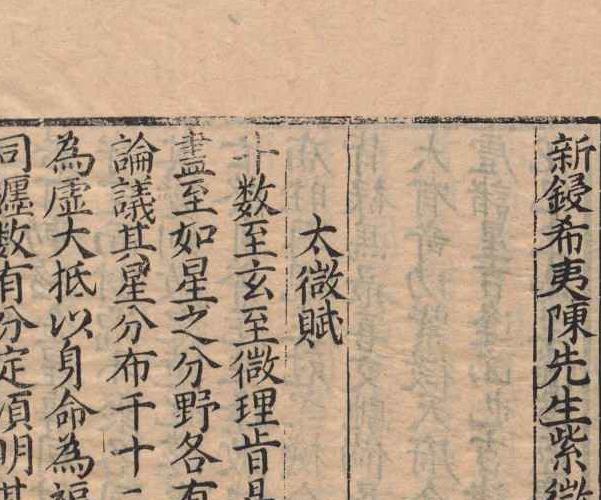 新鋟希夷陳先生紫微
太微賦
斗数至玄至微理旨
盡至如星之分野各有
論議其星分布千十二
為虛大抵以身命為福
同纏数有分定須明其